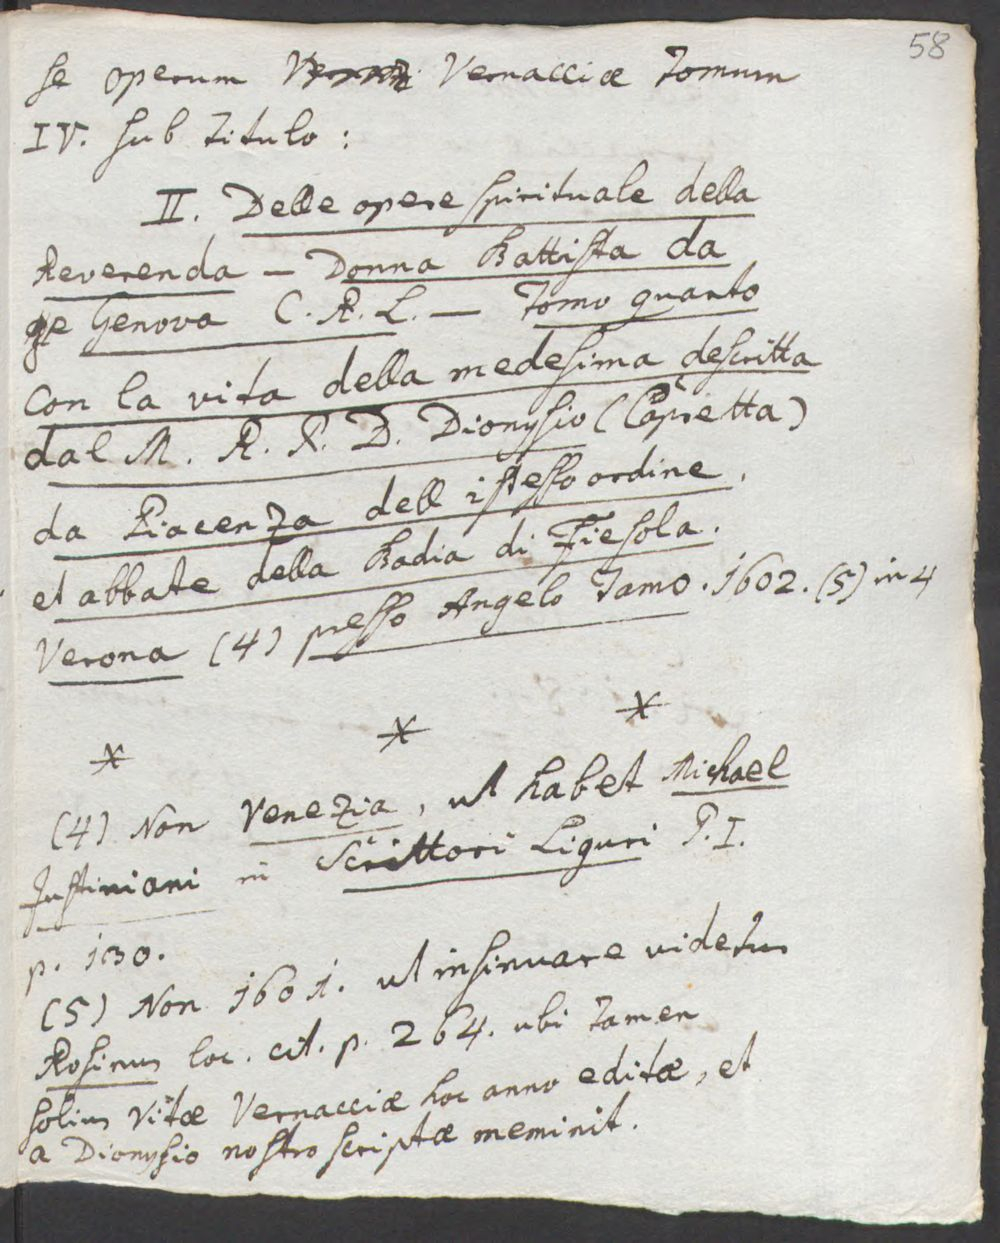 58
se operum Vernacciæ Tomum
IV. sub titulo:
II. Delle opere spirituale della
Reverenda — Donna Battista da
Genova C. R. L. — Tomo quarto
con la vita della medesima descritta
dal M. R. P. D. Dionysio (Capretta)
da Piacenza dell istesso ordine,
et abbate della Badia di Fiesola.
Verona (4) presso Angelo Tamo. 1602. (5) in 4
* * *
(4) Non Venezia, ut habet Michael
Justiniani in Scrittori Liguri P. I.
p. 130.
(5) Non 1601. ut insinuare videtur
Rosinus loc. cit. p. 264. ubi tamen
solius Vitæ Vernacciæ hoc anno editæ, et
a Dionysio nostro scriptæ meminit.